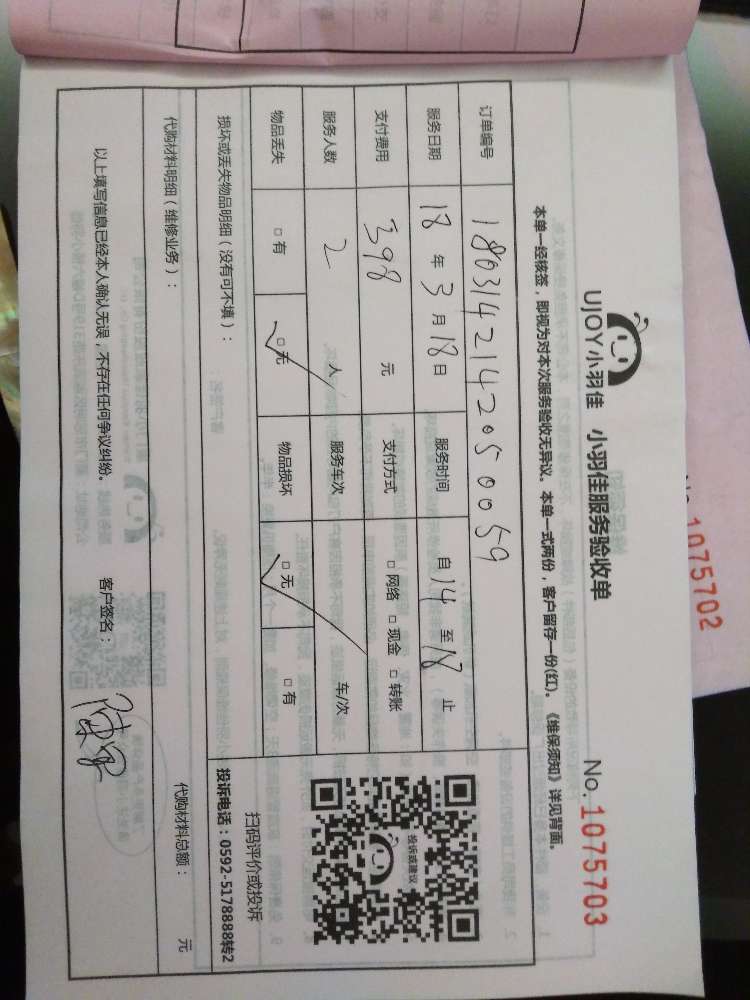 UJOY小羽佳 小羽佳服务验收单
No. 1075703
本单一经核签，即视为对本次服务验收无异议。本单一式两份，客户留存一份(红)。《维保须知》详见背面。
订单编号 180314214205 0059
服务日期 18 年 3 月 18 日 服务时间 自 14 至 18 止
支付费用 398 元 支付方式 □ 网络 □ 现金 □ 转账
服务人数 2 人 服务车次 车/次
物品丢失 □ 有 □ 无 物品损坏 □ 无 □ 有
投诉或建议
扫码评价或投诉
投诉电话：0592-5178888转2
损坏或丢失物品明细（没有可不填）：
代购材料明细（维修业务）：
代购材料总额： 元
以上填写信息已经本人确认无误，不存在任何争议纠纷。 客户签名：
No. 1075702